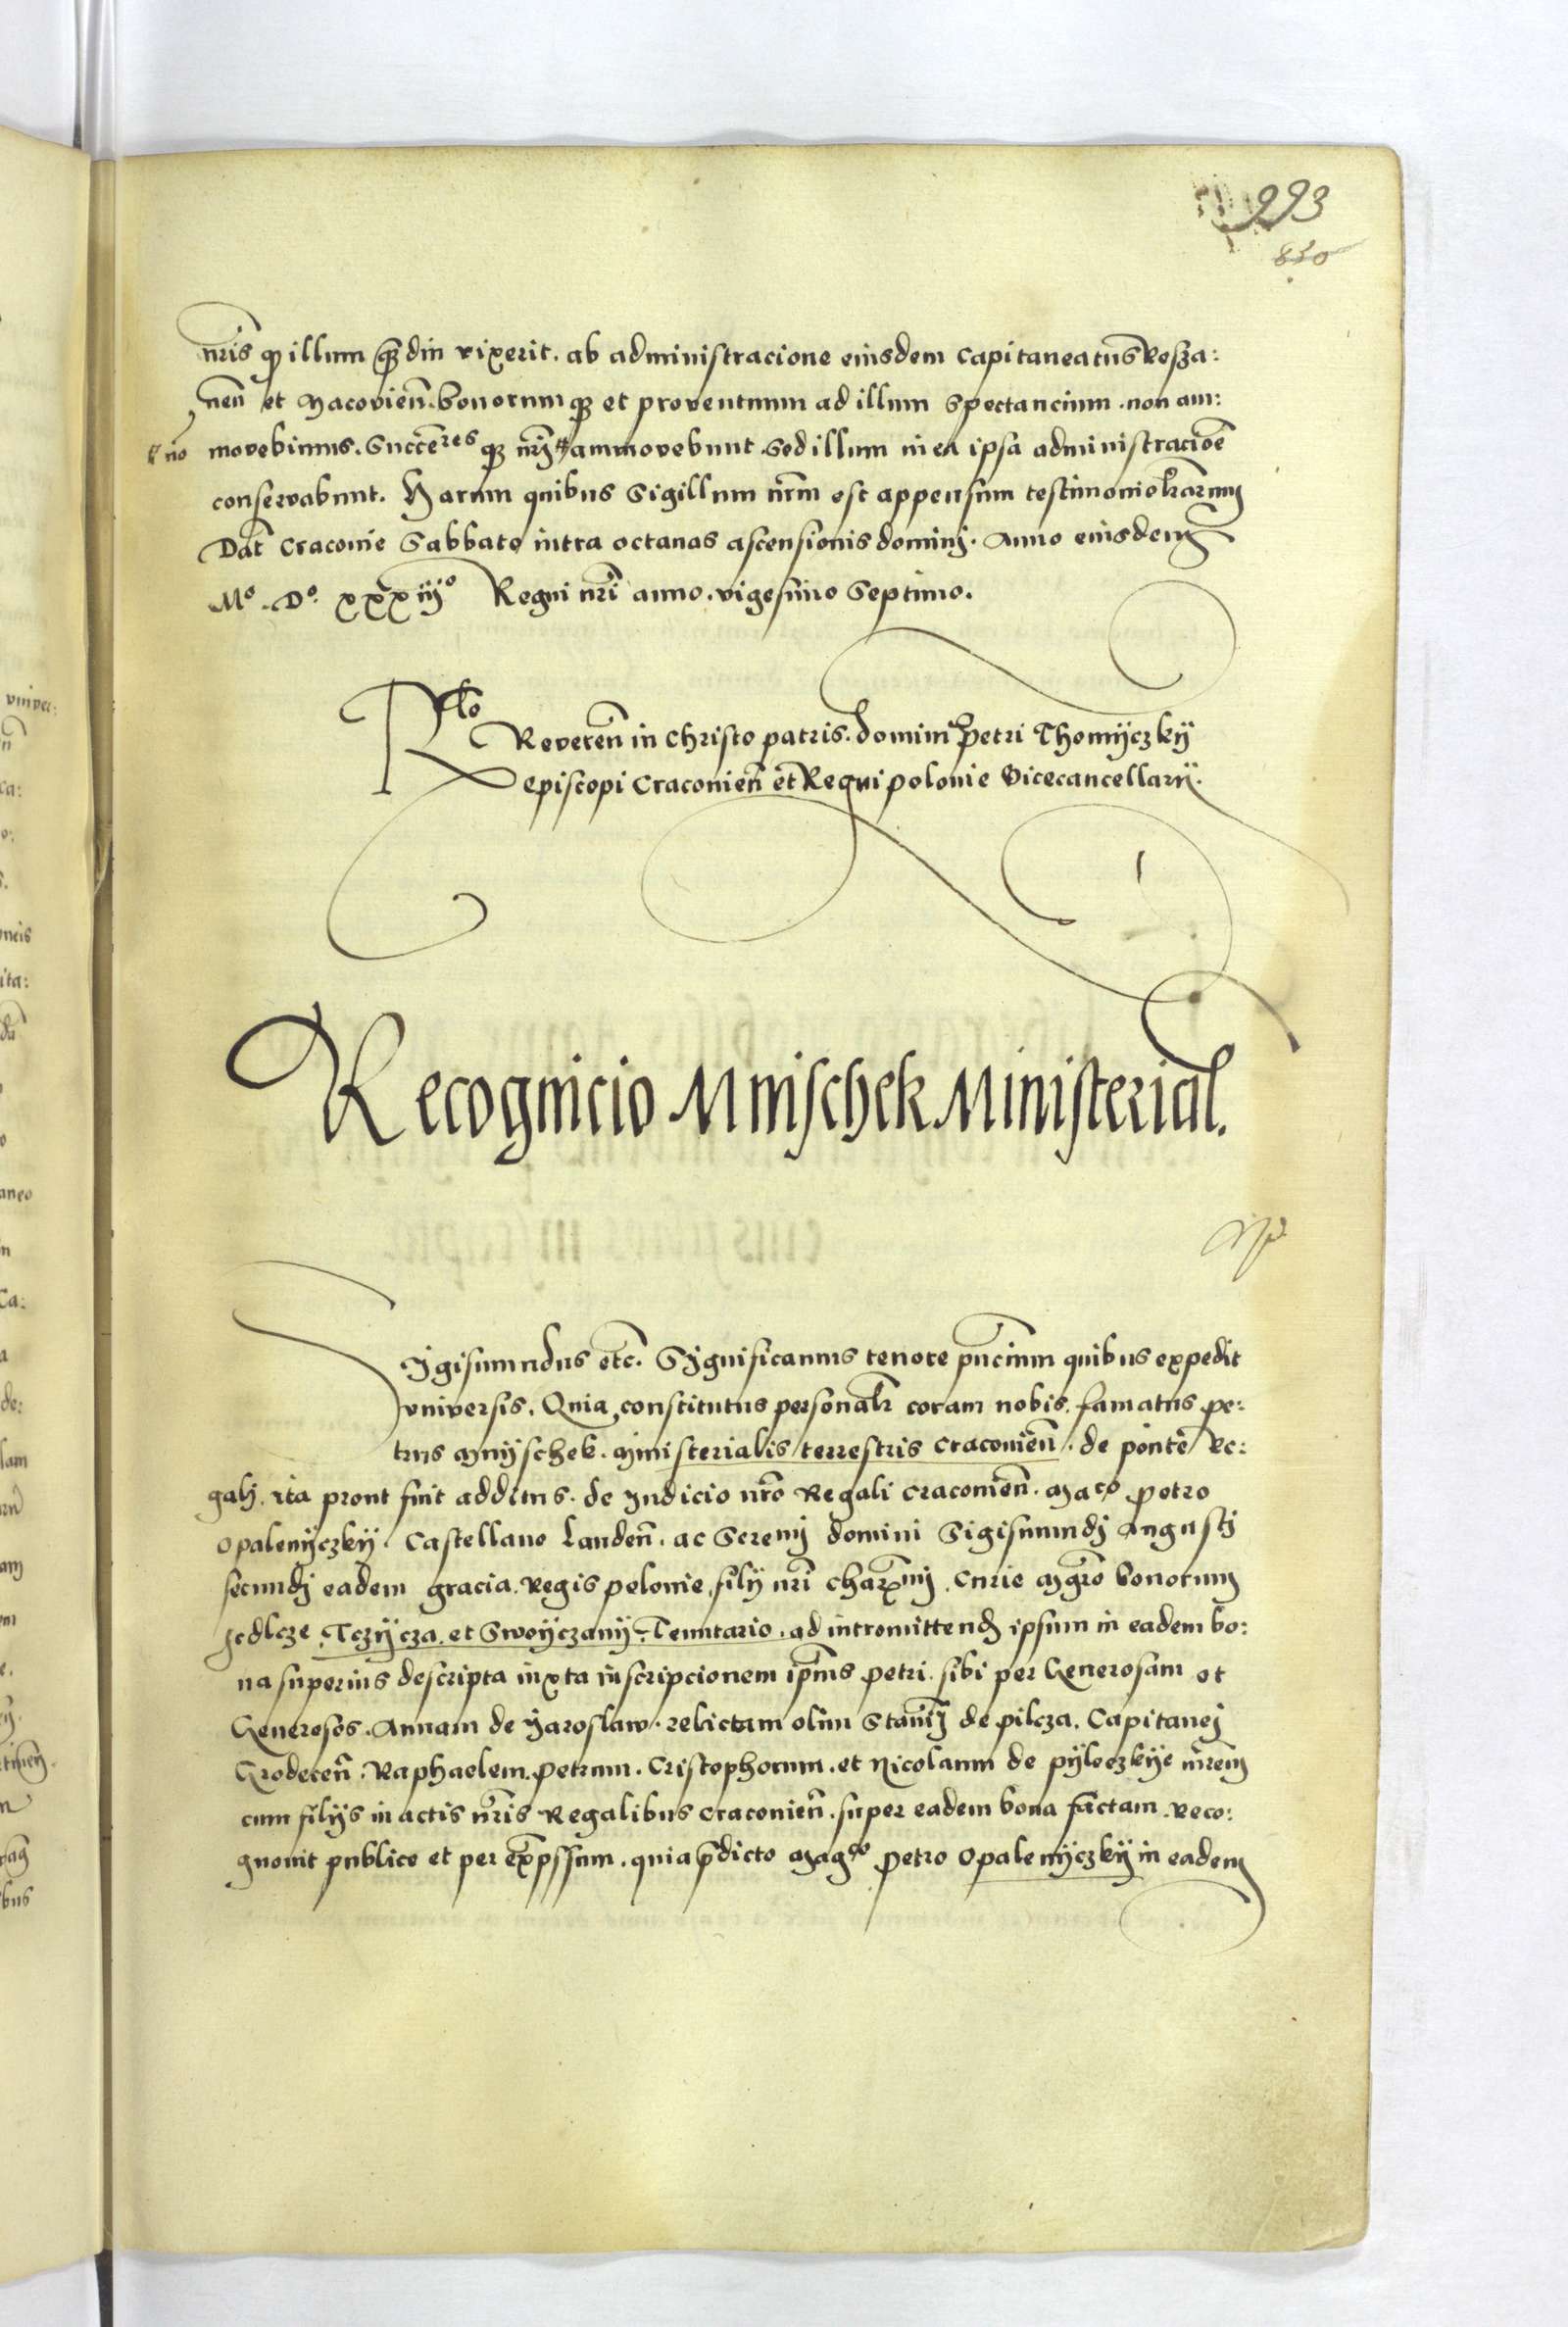 993
830
nr̄is qȝ illum q̄ȝdiu vixerit. ab administracione eiusdem Capitaneatus Rosza:
nen̄ et Macovien̄. bonorum qȝ et proventuum ad illum Spectancium. non am:
no movebimus. Succēres qȝ nr̄j # ammovebunt. Sed illum in ea ipsa administracioē
conservabunt. Harum quibus Sigillum nr̄m est appensum testimonio lr̄arum
Dat̄ Cracovie Sabbato intra octauas ascensionis dominj. Anno eiusdem
Mº. Dº. xxxiijº Regni nr̄i anno. vigesimo Septimo.
Rlº
Reveren̄ in Christo patris. domini Petri Thomÿczkÿ
episcopi Cracovien̄ et Regni polonie Vicecancellarÿ.
Recognicio Mnischek Ministerial.
Sigismundus etc̄. Significamus tenore pn̄cium quibus expedit
vniversis. Quia, constitutus personal̄r coram nobis. famatus pe:
trus Mnÿschek. Ministerialis terrestris Cracovien̄. de ponte Re:
galj. ita prout fuit additus. de Judicio nr̄o Regali Cracovien̄. Maco petro
Opalenÿczkÿ. Castellano Landen̄. ac Serenj domini Sigismundj Augustj
secundj eadem gracia. Regis polonie, filÿ nr̄i char̄mj. Curie Mgr̄o bonorum
Jedlcze. Tczÿcza. et Swoÿczanÿ. Tenutario. ad intromittend̄ ipsum in eadem bo:
na superius descripta iuxta inscripcionem ip̄ius petri. sibi per Generosam et
Generosos. Annam de Jaroslaw. relictam olim Stan̄ij de pilcza. Capitanej
Grodecen̄. Raphaelem. petrum. Cristophorum. et Nicolaum de pÿleczkÿe mr̄em
cum filÿs in actis nr̄is Regalibus Cracovien̄. super eadem bona factam. reco:
gnovit publice et per exp̄ssum. quia p̄dicto Magco petro Opalenÿczkÿ in eadem